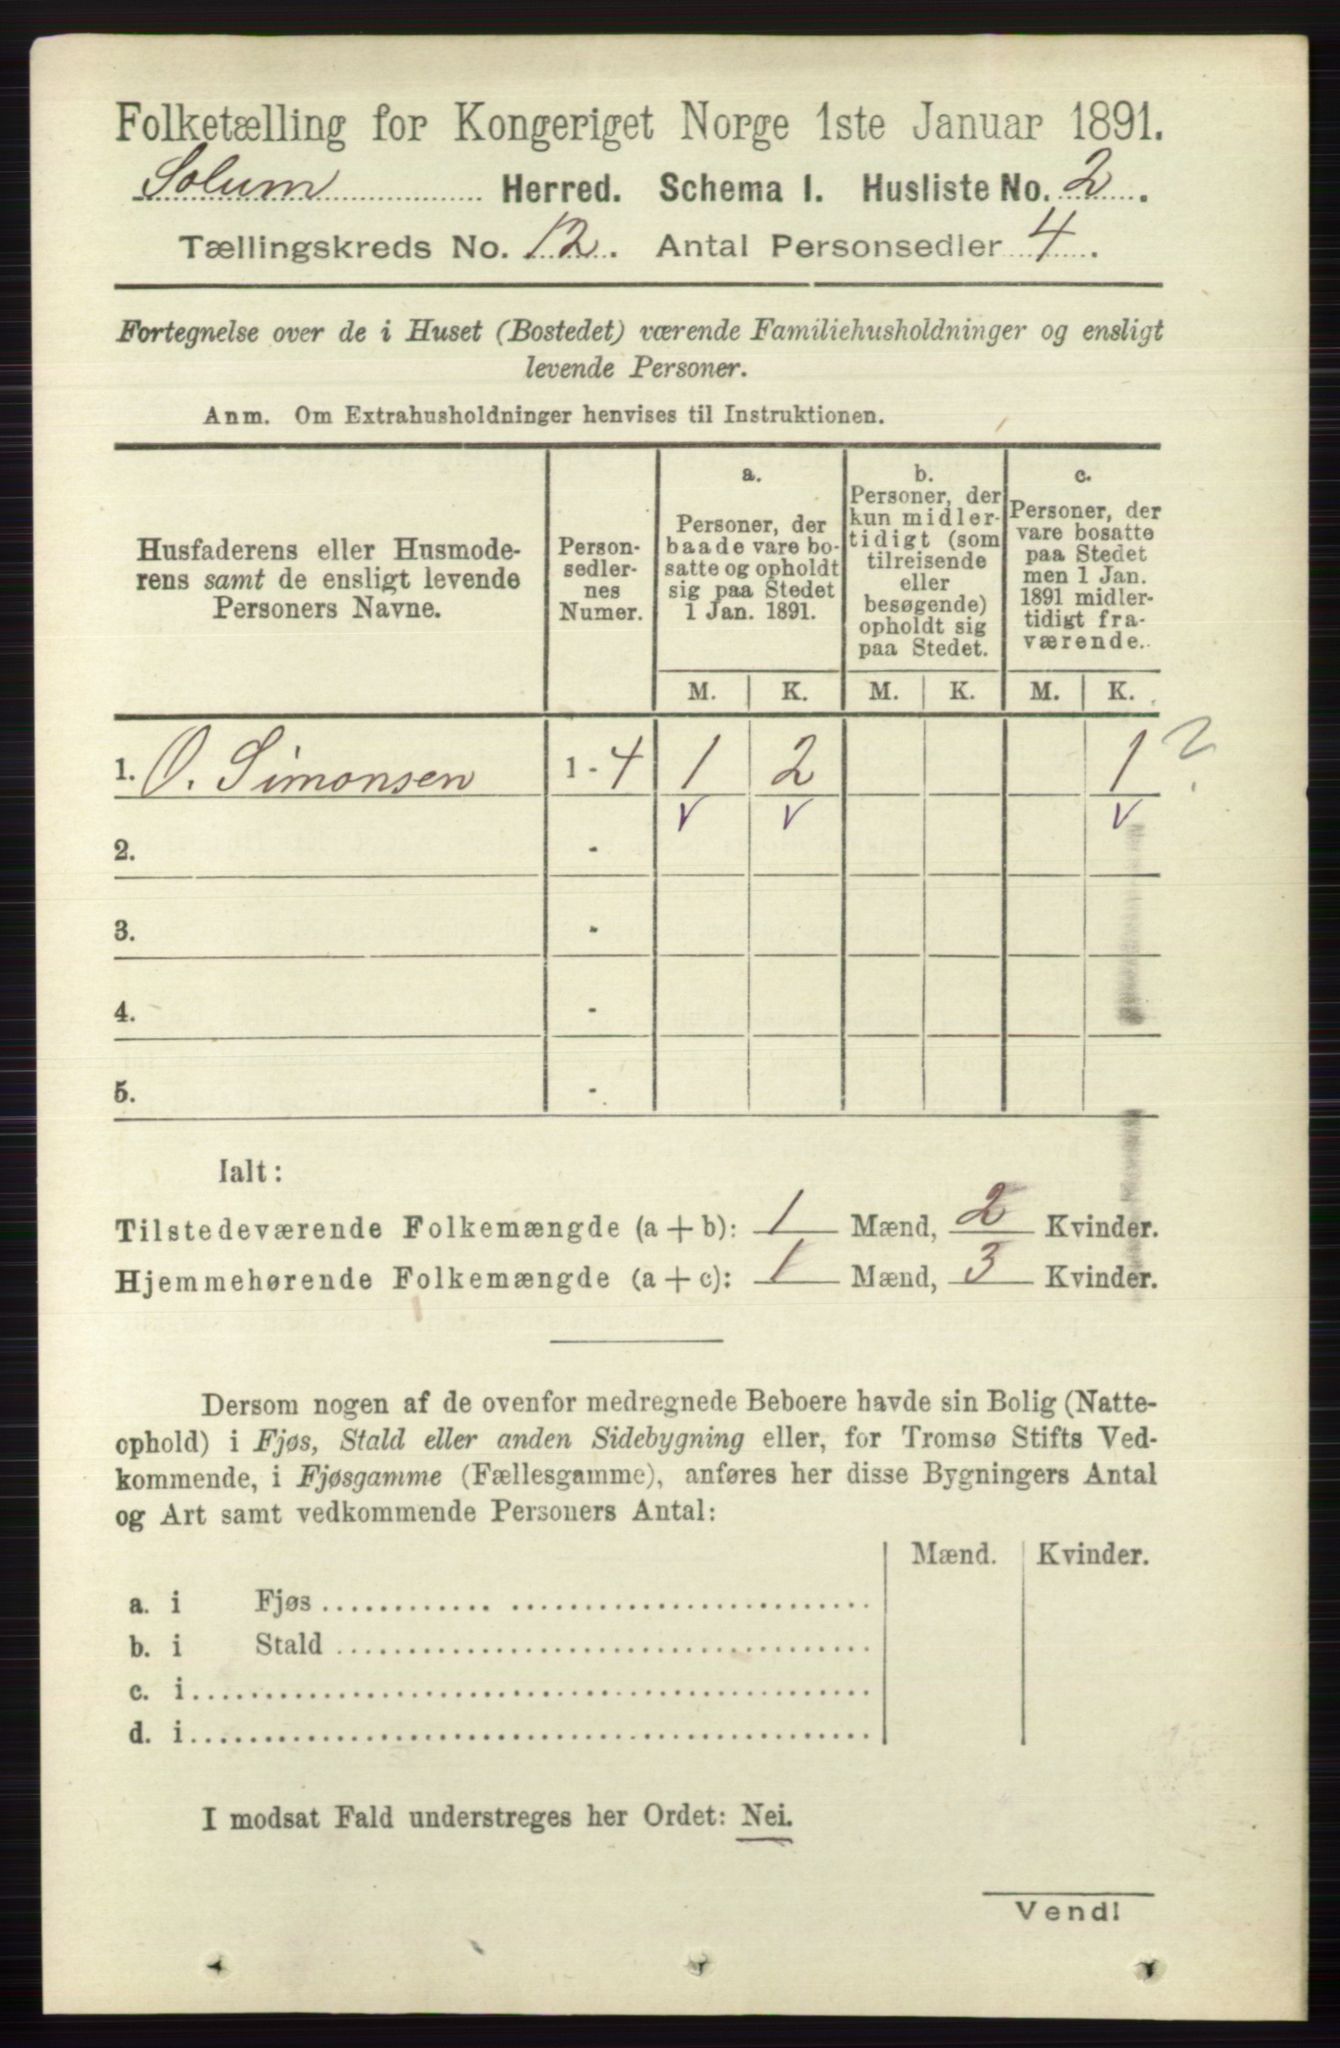 Folketælling for Kongeriget Norge 1ste Januar 1891.
Solum Herred. Schema I. Husliste No. 2.
Tællingskreds No. 12. Antal Personsedler 4.
Fortegnelse over de i Huset (Bostedet) værende Familiehusholdninger og ensligt
levende Personer.
Anm. Om Extrahusholdninger henvises til Instruktionen.
Husfaderens eller Husmode-
rens samt de ensligt levende
Personers Navne.
Person-
sedler-
nes
Numer.
a.
Personer, der
baade vare bo-
satte og opholdt
sig paa Stedet
1 Jan. 1891.
b.
Personer, der
kun midler-
tidigt (som
tilreisende
eller
besøgende)
opholdt sig
paa Stedet.
c.
Personer, der
vare bosatte
paa Stedet
men 1 Jan.
1891 midler-
tidigt fra-
værende.
M. K. M. K. M. K.
1. O. Simonsen 1 - 4 1 2 1 ?
v v v
2. -
3. -
4. -
5. -
Ialt:
Tilstedeværende Folkemængde (a + b): 1 Mænd, 2 Kvinder.
Hjemmehørende Folkemængde (a + c): 1 Mænd, 3 Kvinder.
Dersom nogen af de ovenfor medregnede Beboere havde sin Bolig (Natte-
ophold) i Fjøs, Stald eller anden Sidebygning eller, for Tromsø Stifts Ved-
kommende, i Fjøsgamme (Fællesgamme), anføres her disse Bygningers Antal
og Art samt vedkommende Personers Antal:
Mænd. Kvinder.
a. i Fjøs
b. i Stald
c. i
d. i
I modsat Fald understreges her Ordet: Nei.
Vend!